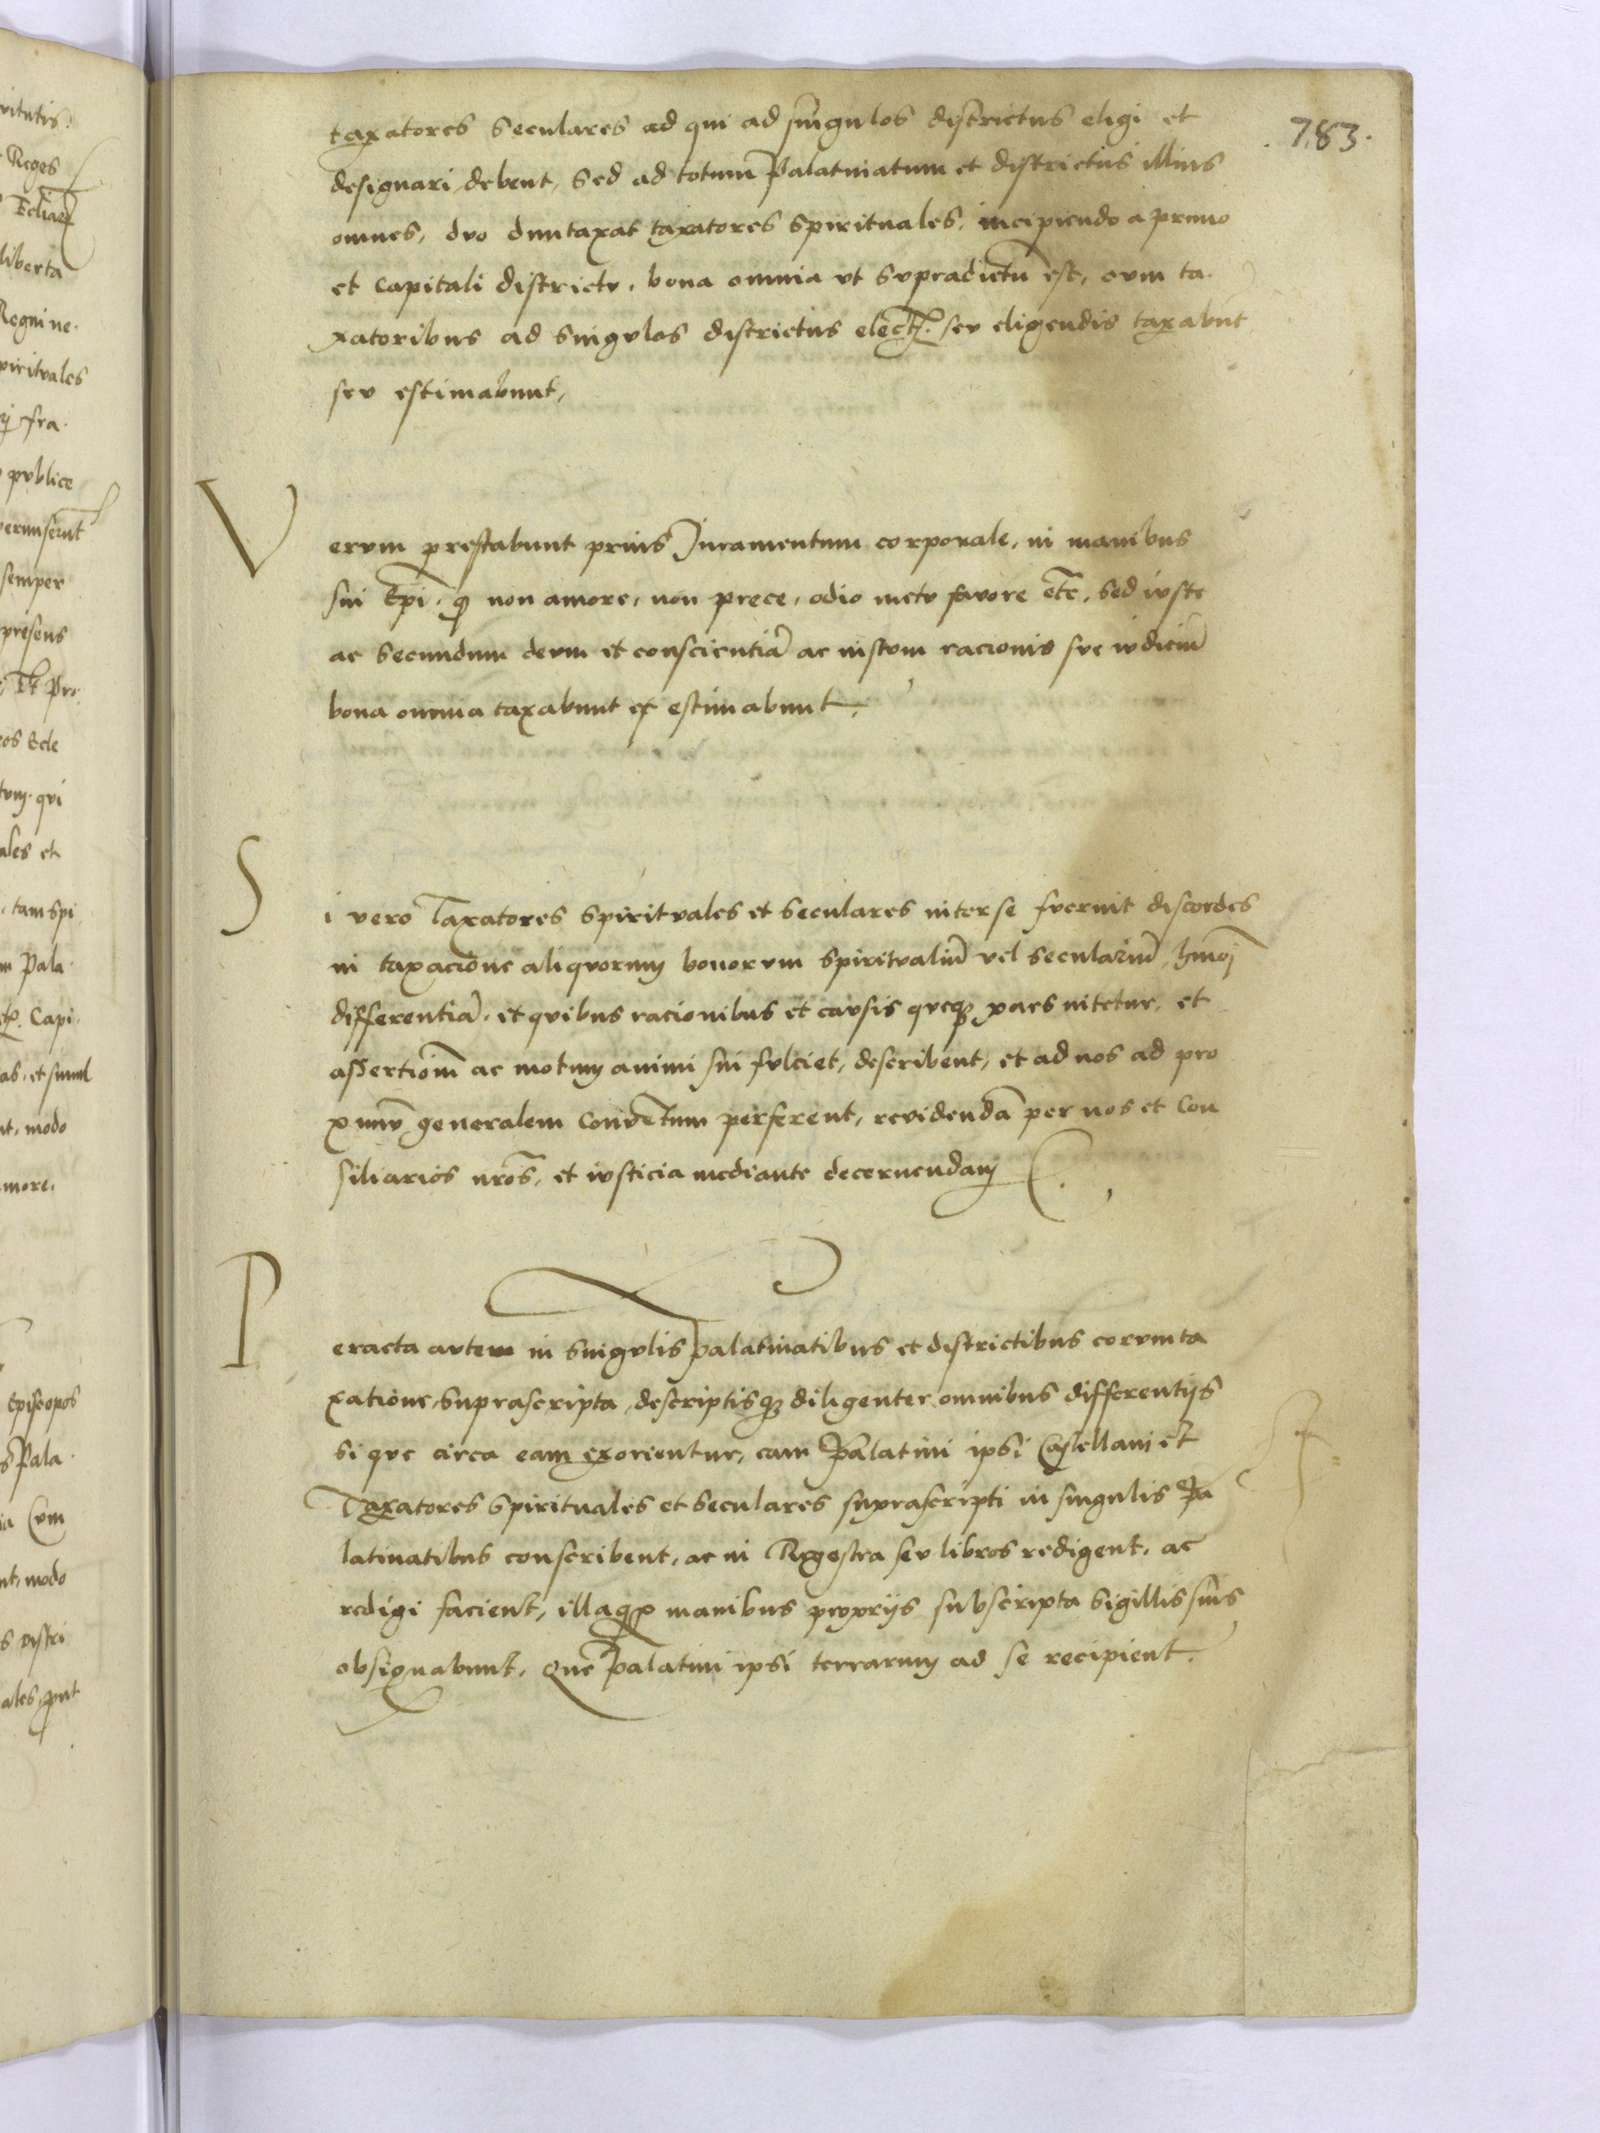 .783.
taxatores seculares ad qui ad singulos districtus eligi et
designari debent, sed ad totum Palatinatum et districtus illius
omnes, duo duntaxat taxatores spirituales, incipiendo a primo
et capitali districtu, bona omnia ut supradictũ est, cum ta.
xatoribus ad singulos districtus elect. seu eligendis taxabũt
seu estimabunt,
Verum prestabunt prius Juramentum corporale, in manibus
sui Epi. q non amore, non prece, odio metu favore etc, sed iuste
ac secundum deum et conscientiã ac iustum racionis sue iudiciũ
bona omnia taxabunt et estimabunt.
Si vero Taxatores spirituales et seculares inter se fuerint discordes
in taxacione aliquorum bonorum spiritualiũ vel seculariũ, hmoi
differentiã, et quibus racionibus et causis queq; pars nitetur, et
assertionẽ ac motum animi sui fulciet, describent, et ad nos ad pro
ximũ generalem Conventum perferent, revidendã per nos et Con
siliarios nros, et iusticia mediante decernendam
Peracta autem in singulis palatinatibus et districtibus eorum ta
xatione suprascripta, descriptisq; diligenter omnibus differentijs
si que circa eam exorientur, eam Palatini ipsi Castellani et
Taxatores spirituales et seculares suprascripti in singulis Pa
latinatibus conscribent, ac in Regestra seu libros redigent, ac
redigi facient, illaq; manibus proprijs subscripta sigillis suis
obsignabunt, Que Palatini ipsi terrarum ad se recipient.